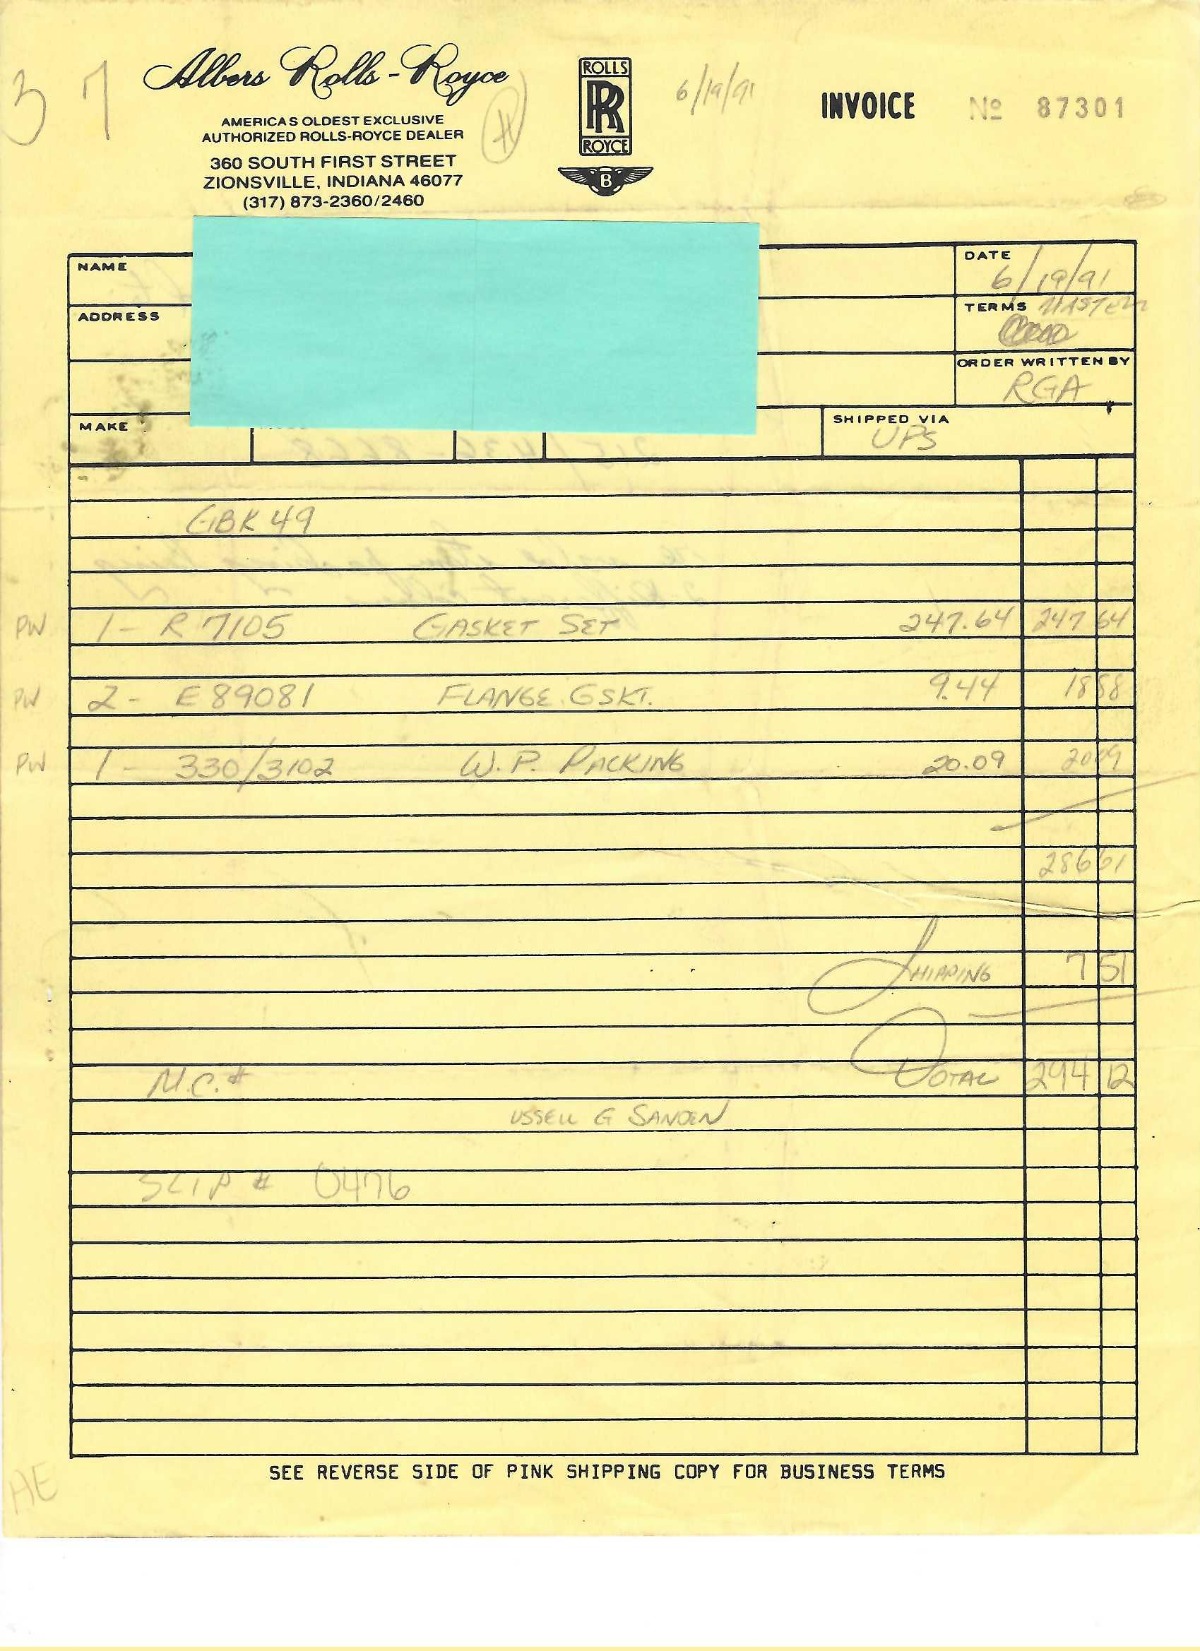 37
Albers Rolls-Royce
AMERICA'S OLDEST EXCLUSIVE
AUTHORIZED ROLLS-ROYCE DEALER
360 SOUTH FIRST STREET
ZIONSVILLE, INDIANA 46077
(317) 873-2360/2460
#
ROLLS
RR
ROYCE
B
6/19/91
INVOICE No 87301
NAME
DATE
6/19/91
ADDRESS
TERMS MASTER
ORDER WRITTEN BY
RGA
MAKE
SHIPPED VIA
UPS
GBK 49
PW 1 - R 7105 GASKET SET 247.64 247 64
PW 2 - E 89081 FLANGE GSKT. 9.44 18 88
PW 1 - 330/3102 W.P. PACKING 20.09 20 09
286 61
SHIPPING 7 51
M.C. # TOTAL 294 12
USSELL G SANDEN
SLIP # 0476
SEE REVERSE SIDE OF PINK SHIPPING COPY FOR BUSINESS TERMS
HE